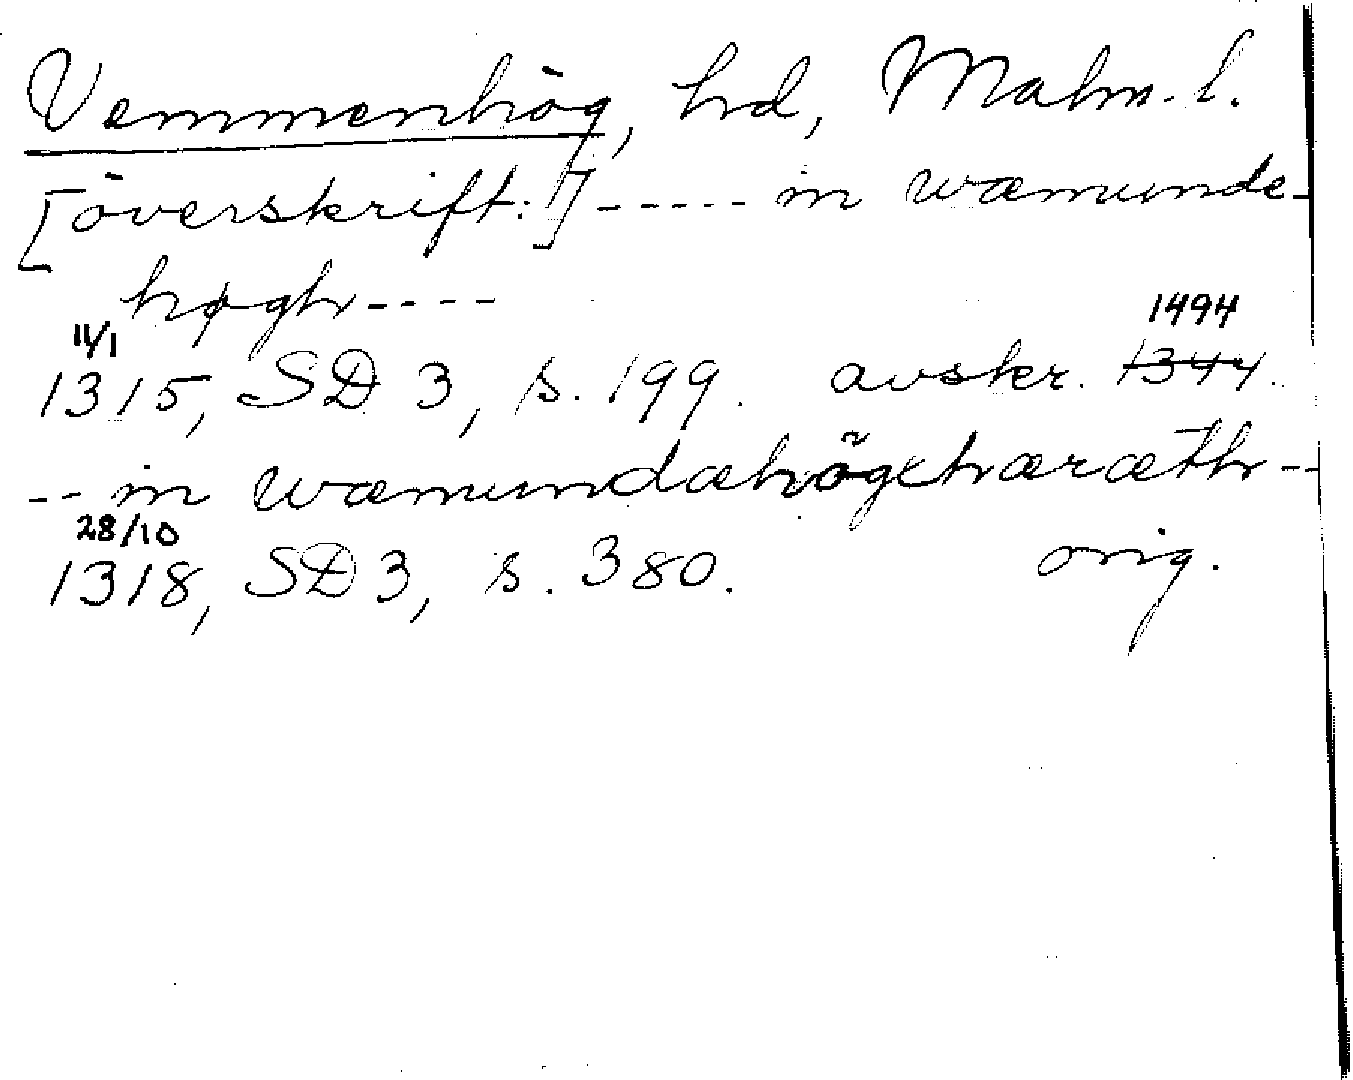 Vemmenhög, hd, Malm. l.
[överskrift:] ----- in wæmunde-
høgh ----
11/1 1494
1315, SD 3, s. 199. avskr. 1344.
-- in wæmundæhögehæræth --
28/10
1318, SD 3, s. 380. orig.